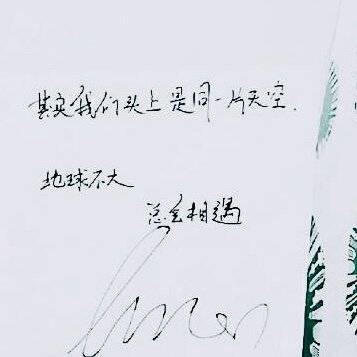 其实我们头上是同一片天空.
地球不大
总会相遇